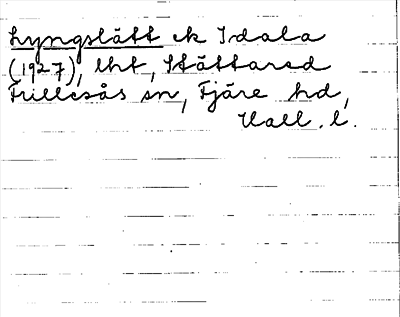 Lyngslätt ek Idala
(1927), lht, Stättared
Frillesås sn, Fjäre hd,
Hall. l.